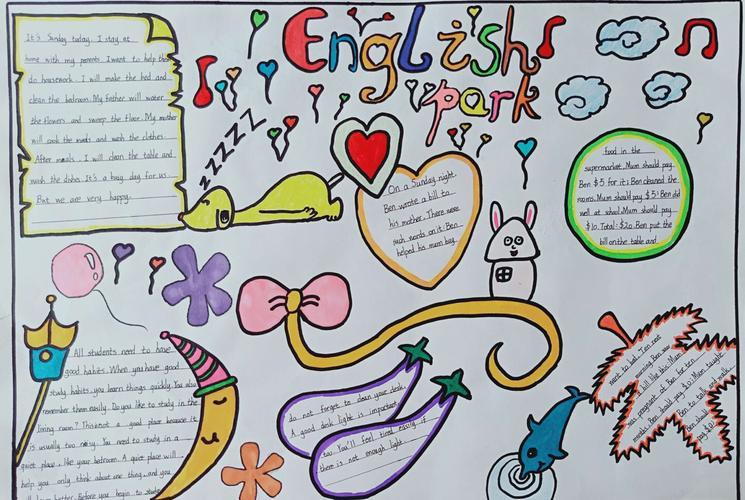 English
park
It's Sunday today. I stay at
home with my parents. I want to help the
do housework. I will make the bed and
clean the bedroom. My father will water
the flowers and sweep the floor. My mother
will cook the meals and wash the clothes.
After meals, I will clean the table and
wash the dishes. It's a busy day for us.
But we are very happy.
zzzzz
On a Sunday night
Ben wrote a bill to
his mother. There were
such words on it: Ben
helped his mum buy
food in the
supermarket. Mum should pay
Ben $5 for it; Ben cleaned the
rooms. Mum should pay $5; Ben did
well at school. Mum should pay
$10. Total: $20. Ben put the
bill on the table and
went to bed.
morning Ben saw
a bill like this: Mum
was pregnant of Ben for ten
months. Ben should pay $0; Mum taught
Ben to talk and walk.
Ben should
pay $0;
All students need to have
good habits. When you have good
study habits, you learn things quickly. You also
remember them easily. Do you like to study in the
living room? This not a good place because it
is usually too noisy. You need to study in a
quiet place, like your bedroom. A quiet place will
help you only think about one thing, and you
better. Before you begin to study
do not forget to clean your desk.
A good desk light is important
too. You'll feel tired easily if
there is not enough light.